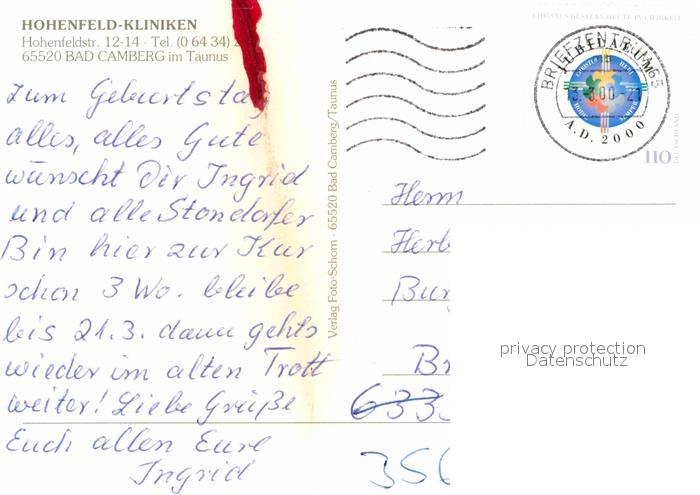 HOHENFELD-KLINIKEN
Hohenfeldstr. 12-14 · Tel. (0 64 34)
65520 BAD CAMBERG im Taunus
zum Geburtstag
alles, alles Gute
wünscht Dir Ingrid
und alle Stondorfer
Bin hier zur Kur
schon 3 Wo. bleibe
bis 21.3. dann gehts
wieder im alten Trott
weiter! Liebe Grüße
Euch allen Eure
Ingrid
Verlag Foto-Schorn · 65520 Bad Camberg/Taunus
CHRISTUS GESTERN HEUTE IN EWIGKEIT
BRIEFZENTRUM 65
IUBILAEUM
CHRISTUS HERI
HODIE SEMPER
A.D. 2000
110
DEUTSCHLAND
Herrn
Herb
Bur
Br
6333
356
privacy protection
Datenschutz